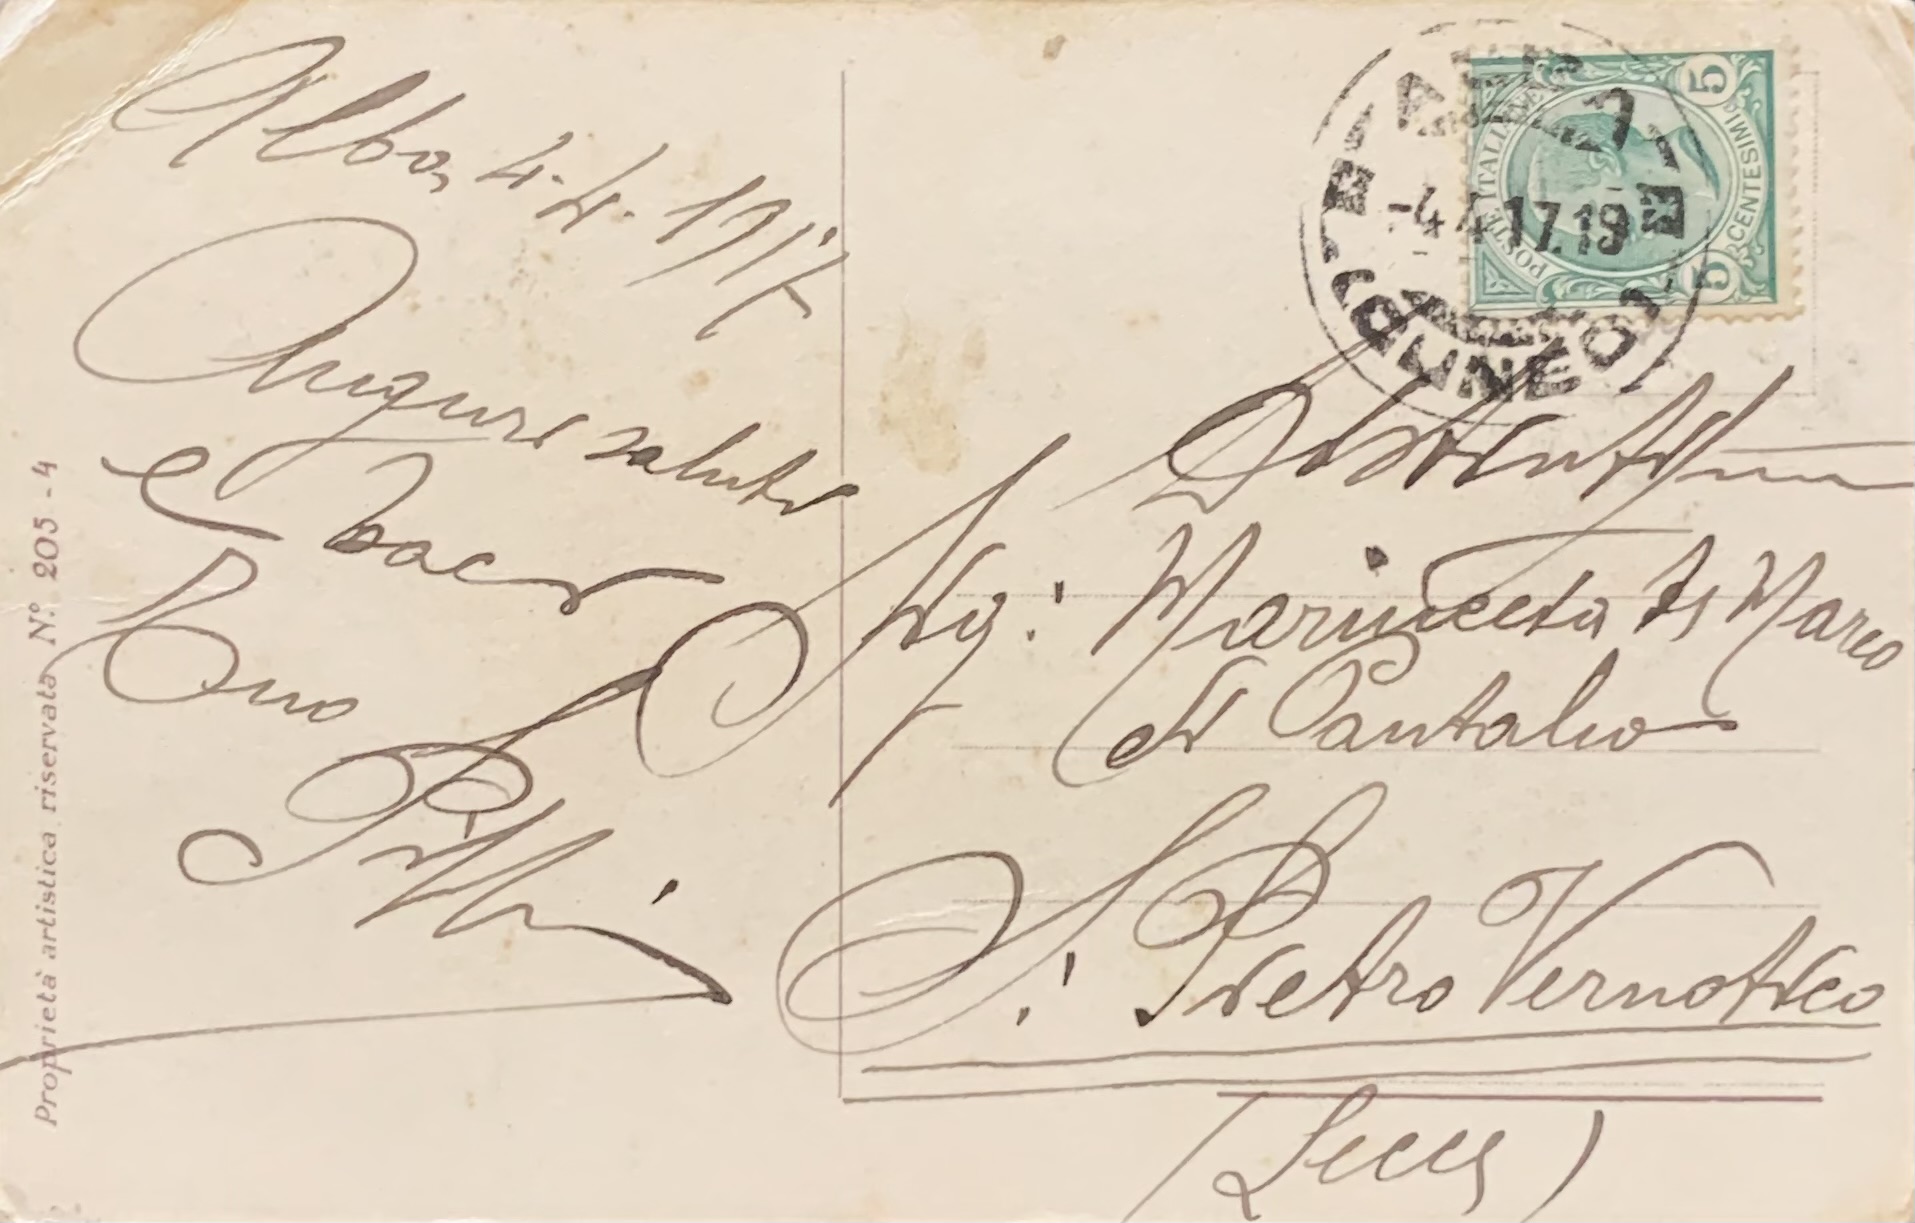 Alba, 4-4-1917
Auguri saluti
e baci
Tuo
Pippi
Proprietà artistica riservata N.º 205 - 4
ALBA
-4.4.17.19
(CUNEO)
POSTE ITALIANE
CENTESIMI
5
5
Sig:
Marietta di Marco
di Pantaleo
S. Pietro Vernotico
(Lecce)